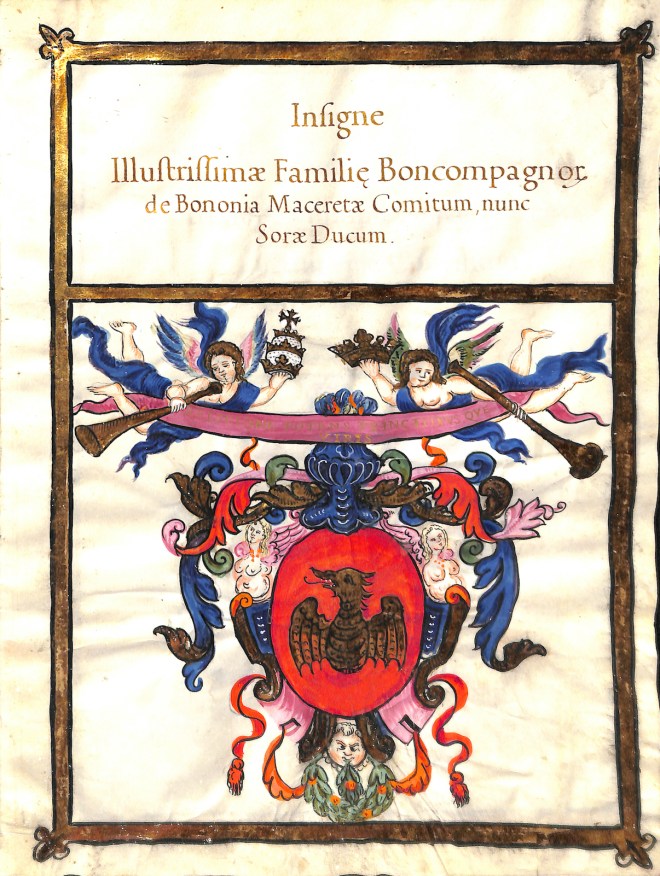 Inſigne
Illuſtriſſimæ Familię Boncompagnoꝝ
de Bononia Maceretæ Comitum, nunc
Soræ Ducum.